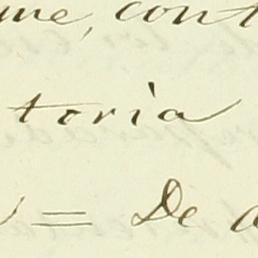 me, cont
toria
= De